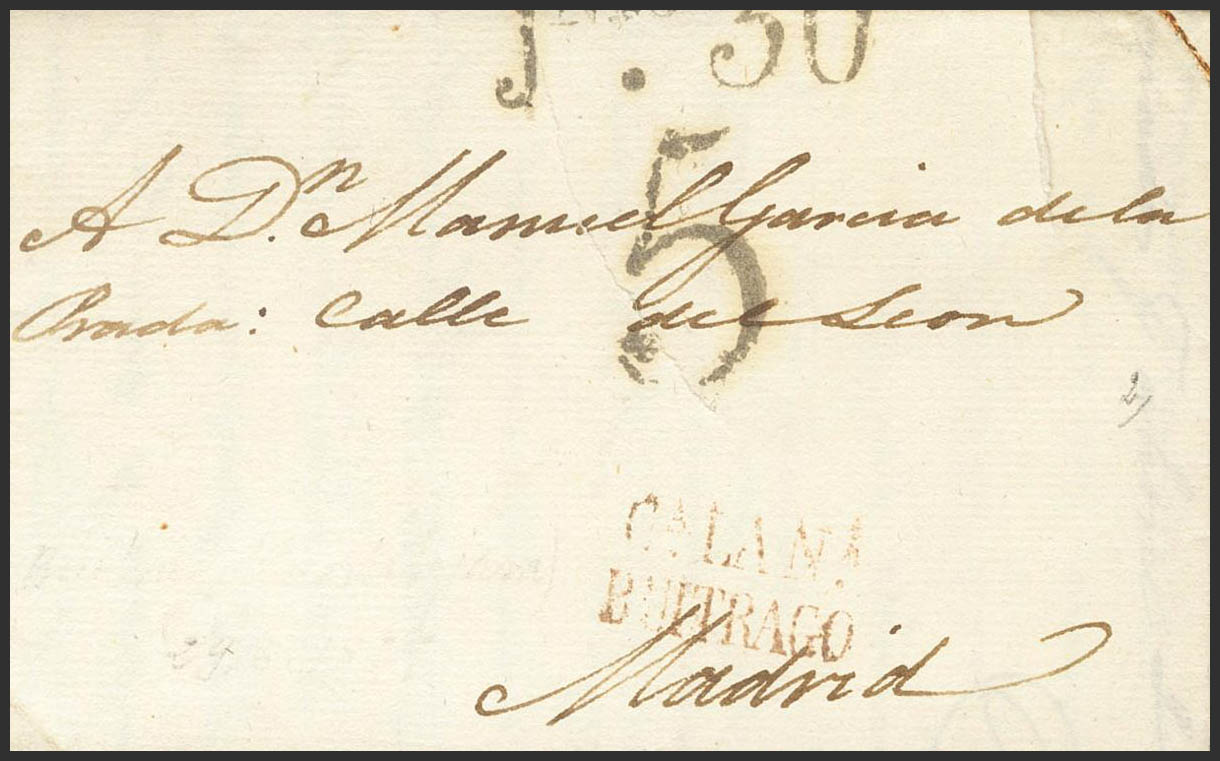 30
5
A D.n Manuel Garcia de la
Prada: Calle del Leon
BUITRAGO
Madrid